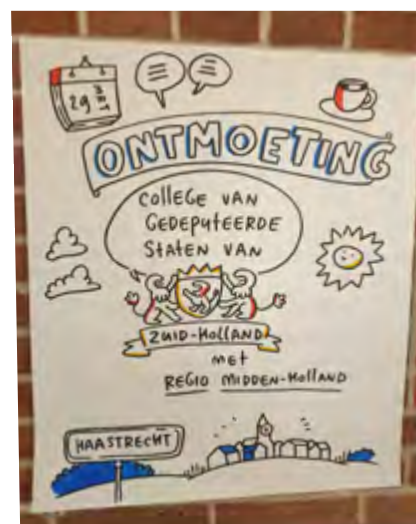 29
ONTMOETING
COLLEGE VAN
GEDEPUTEERDE
STATEN VAN
ZUID-HOLLAND
met
REGIO MIDDEN-HOLLAND
HAASTRECHT